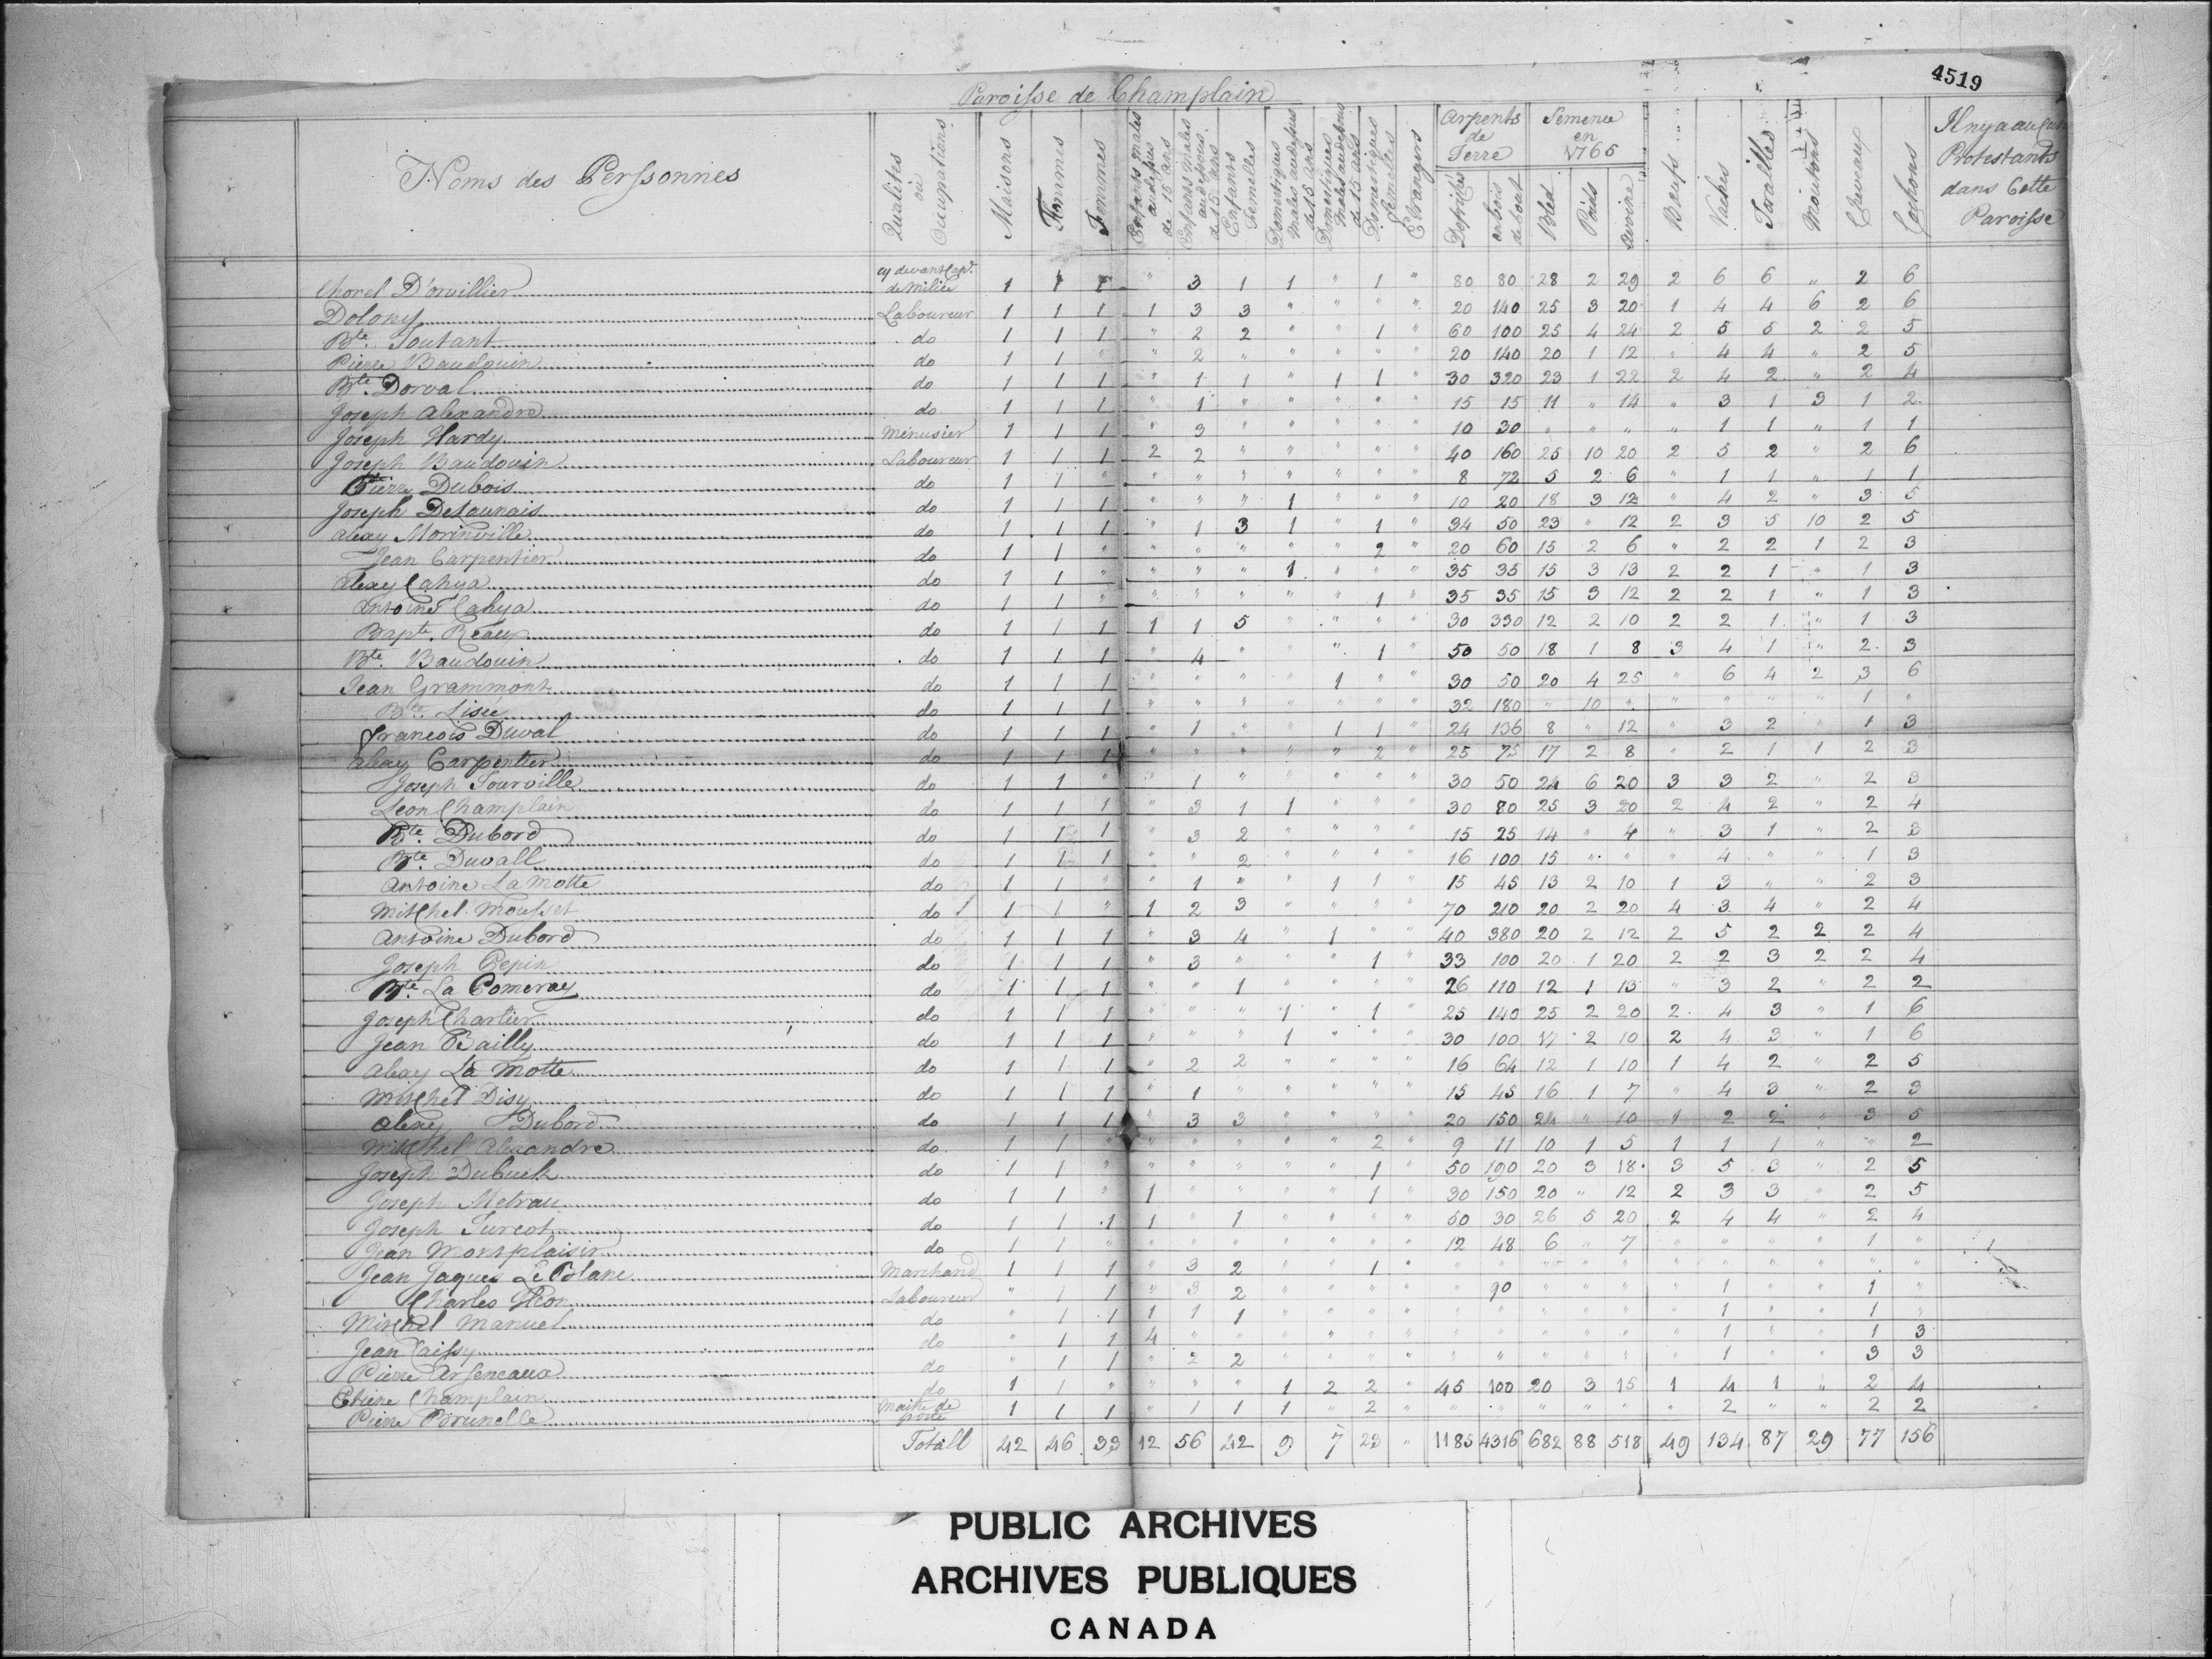 4519
Paroisse de Champlain
Noms des Perssonnes | Qualités ou Occupations | Maisons | Hommes | Femmes | Enfants mâles au dessus de 15 ans | Enfants mâles au dessous de 15 ans | Enfants Femelles | Domestiques Males au dessus de 15 ans | Domestiques Males au dessous de 15 ans | Domestiques Femelles | Etrangers | Arpents de Terre Defrichés | en bois de bout | Semence en 1765 Bled | Poids | avoine | Bœufs | Vaches | Toralles | Moutons | Cheveaux | Cochons | Il n'y a aucuns Protestants dans Cette Paroisse
Chorel D'orvillier cy devant Cap.e de milice 1 1 1 " 3 1 1 " 1 " 80 80 28 2 29 2 6 6 " 2 6
Dolony Laboureur 1 1 1 1 3 3 " " " " 20 140 25 3 20 1 4 4 6 2 6
Bte. Toutant do 1 1 1 " 2 2 " " 1 " 60 100 25 4 24 2 5 5 2 2 5
Pierre Baudouin do 1 1 " " 2 " " " " " 20 140 20 1 12 " 4 4 " 2 5
Bte. Dorval do 1 1 1 " 1 1 " 1 1 " 30 320 23 1 22 2 4 2 " 2 4
Joseph Alexandre do 1 1 1 " 1 " " " " " 15 15 11 " 14 " 3 1 3 1 2
Joseph Hardy Menusier 1 1 1 " 3 " " " " " 10 30 " " " " 1 1 " 1 1
Joseph Baudouin Laboureur 1 1 1 2 2 " " " " " 40 160 25 10 20 2 5 2 " 2 6
Pierre Dubois do 1 1 " " " " " " " " 8 72 5 2 6 " 1 1 " 1 1
Joseph DeLaunais do 1 1 1 " " " 1 " " " 10 20 18 3 12 " 4 2 " 3 5
Alexy Morinville do 1 1 1 " 1 3 1 " 1 " 34 50 23 " 12 2 3 5 10 2 5
Jean Carpentier do 1 1 " " " " " " 2 " 20 60 15 2 6 " 2 2 1 2 3
Alexy Cahya do 1 1 " " " " 1 " " " 35 35 15 3 13 2 2 1 " 1 3
Antoine Cahya do 1 1 " " " " " " 1 " 35 35 15 3 12 2 2 1 " 1 3
Bapte. Réaux do 1 1 1 1 1 5 " " " " 30 330 12 2 10 2 2 1 " 1 3
Bte. Baudouin do 1 1 1 " 4 " " " 1 " 50 50 18 1 8 3 4 1 " 2 3
Jean Grammont do 1 1 1 " " " " 1 " " 30 50 20 4 25 " 6 4 2 3 6
Bte. Lisée do 1 1 1 " " " " " " " 32 180 " 10 " " " " " 1 "
François Duval do 1 1 1 " 1 " " 1 1 " 24 136 8 " 12 " 3 2 " 1 3
Alexy Carpentier do 1 1 1 " " " " " 2 " 25 75 17 2 8 " 2 1 1 2 3
Joseph Tourville do 1 1 " " 1 " " " " " 30 50 24 6 20 3 3 2 " 2 3
Leon Champlain do 1 1 1 " 3 1 1 " " " 30 80 25 3 20 2 4 2 " 2 4
Bte. Dubord do 1 1 1 " 3 2 " " " " 15 25 14 " 4 " 3 1 " 2 3
Bte. Duvall do 1 1 1 " " 2 " " " " 16 100 15 " " " 4 " " 1 3
Antoine La Motte do 1 1 " " 1 " " 1 1 " 15 45 13 2 10 1 3 " " 2 3
Mitchel Mousset do 1 1 " 1 2 3 " " " " 70 210 20 2 20 4 3 4 " 2 4
Antoine Dubord do 1 1 1 " 3 4 " 1 " " 40 380 20 2 12 2 5 2 2 2 4
Joseph Pepin do 1 1 1 " 3 " " " 1 " 33 100 20 1 20 2 2 3 2 2 4
Bte. La Pomeray do 1 1 1 " " 1 " " " " 26 110 12 1 13 " 3 2 " 2 2
Joseph Chartier do 1 1 1 " " " 1 " 1 " 25 140 25 2 20 2 4 3 " 1 6
Jean Bailly do 1 1 1 " " " 1 " " " 30 100 17 2 10 2 4 3 " 1 6
Alexy La Motte do 1 1 1 " 2 2 " " " " 16 64 12 1 10 1 4 2 " 2 5
Mitchel Disy do 1 1 1 " 1 " " " " " 15 45 16 1 7 " 4 3 " 2 3
Alexy Dubord do 1 1 1 " 3 3 " " " " 20 150 24 " 10 1 2 2 " 3 5
Mitchel Alexandre do 1 1 " " " " " " 2 " 9 11 10 1 5 1 1 1 " " 2
Joseph Dubuck do 1 1 " " " " " " 1 " 50 190 20 3 18 3 5 3 " 2 5
Joseph Metrau do 1 1 " 1 " " " " 1 " 30 150 20 " 12 2 3 3 " 2 5
Joseph Turcot do 1 1 1 1 " 1 " " " " 50 30 26 5 20 2 4 4 " 2 4
Jean Montplaisir do 1 1 " " " " " " " " 12 48 6 " 7 " " " " 1 "
Jean Jaques Le Blanc Marchand 1 1 1 " 3 2 " " 1 " " " " " " " " " " " "
Charles Laboureur " 1 1 " 3 2 " " " " " 90 " " " " 1 " " 1 "
Mitchel Manuel do " 1 1 1 1 1 " " " " " " " " " " 1 " " 1 "
Jean Caissy do " 1 1 4 " " " " " " " " " " " " 1 " " 1 3
Pierre Arseneaux do " 1 1 " 2 2 " " " " " " " " " " 1 " " 3 3
Etiene Champlain do 1 1 " " " " 1 2 2 " 45 100 20 3 15 1 4 1 " 2 4
Pierre Brunelle maitre de poste 1 1 1 " 1 1 1 " 2 " " " " " " " 2 " " 2 2
Totall 42 46 33 12 56 42 9 7 23 " 1185 4316 682 88 518 49 134 87 29 77 156
PUBLIC ARCHIVES
ARCHIVES PUBLIQUES
CANADA